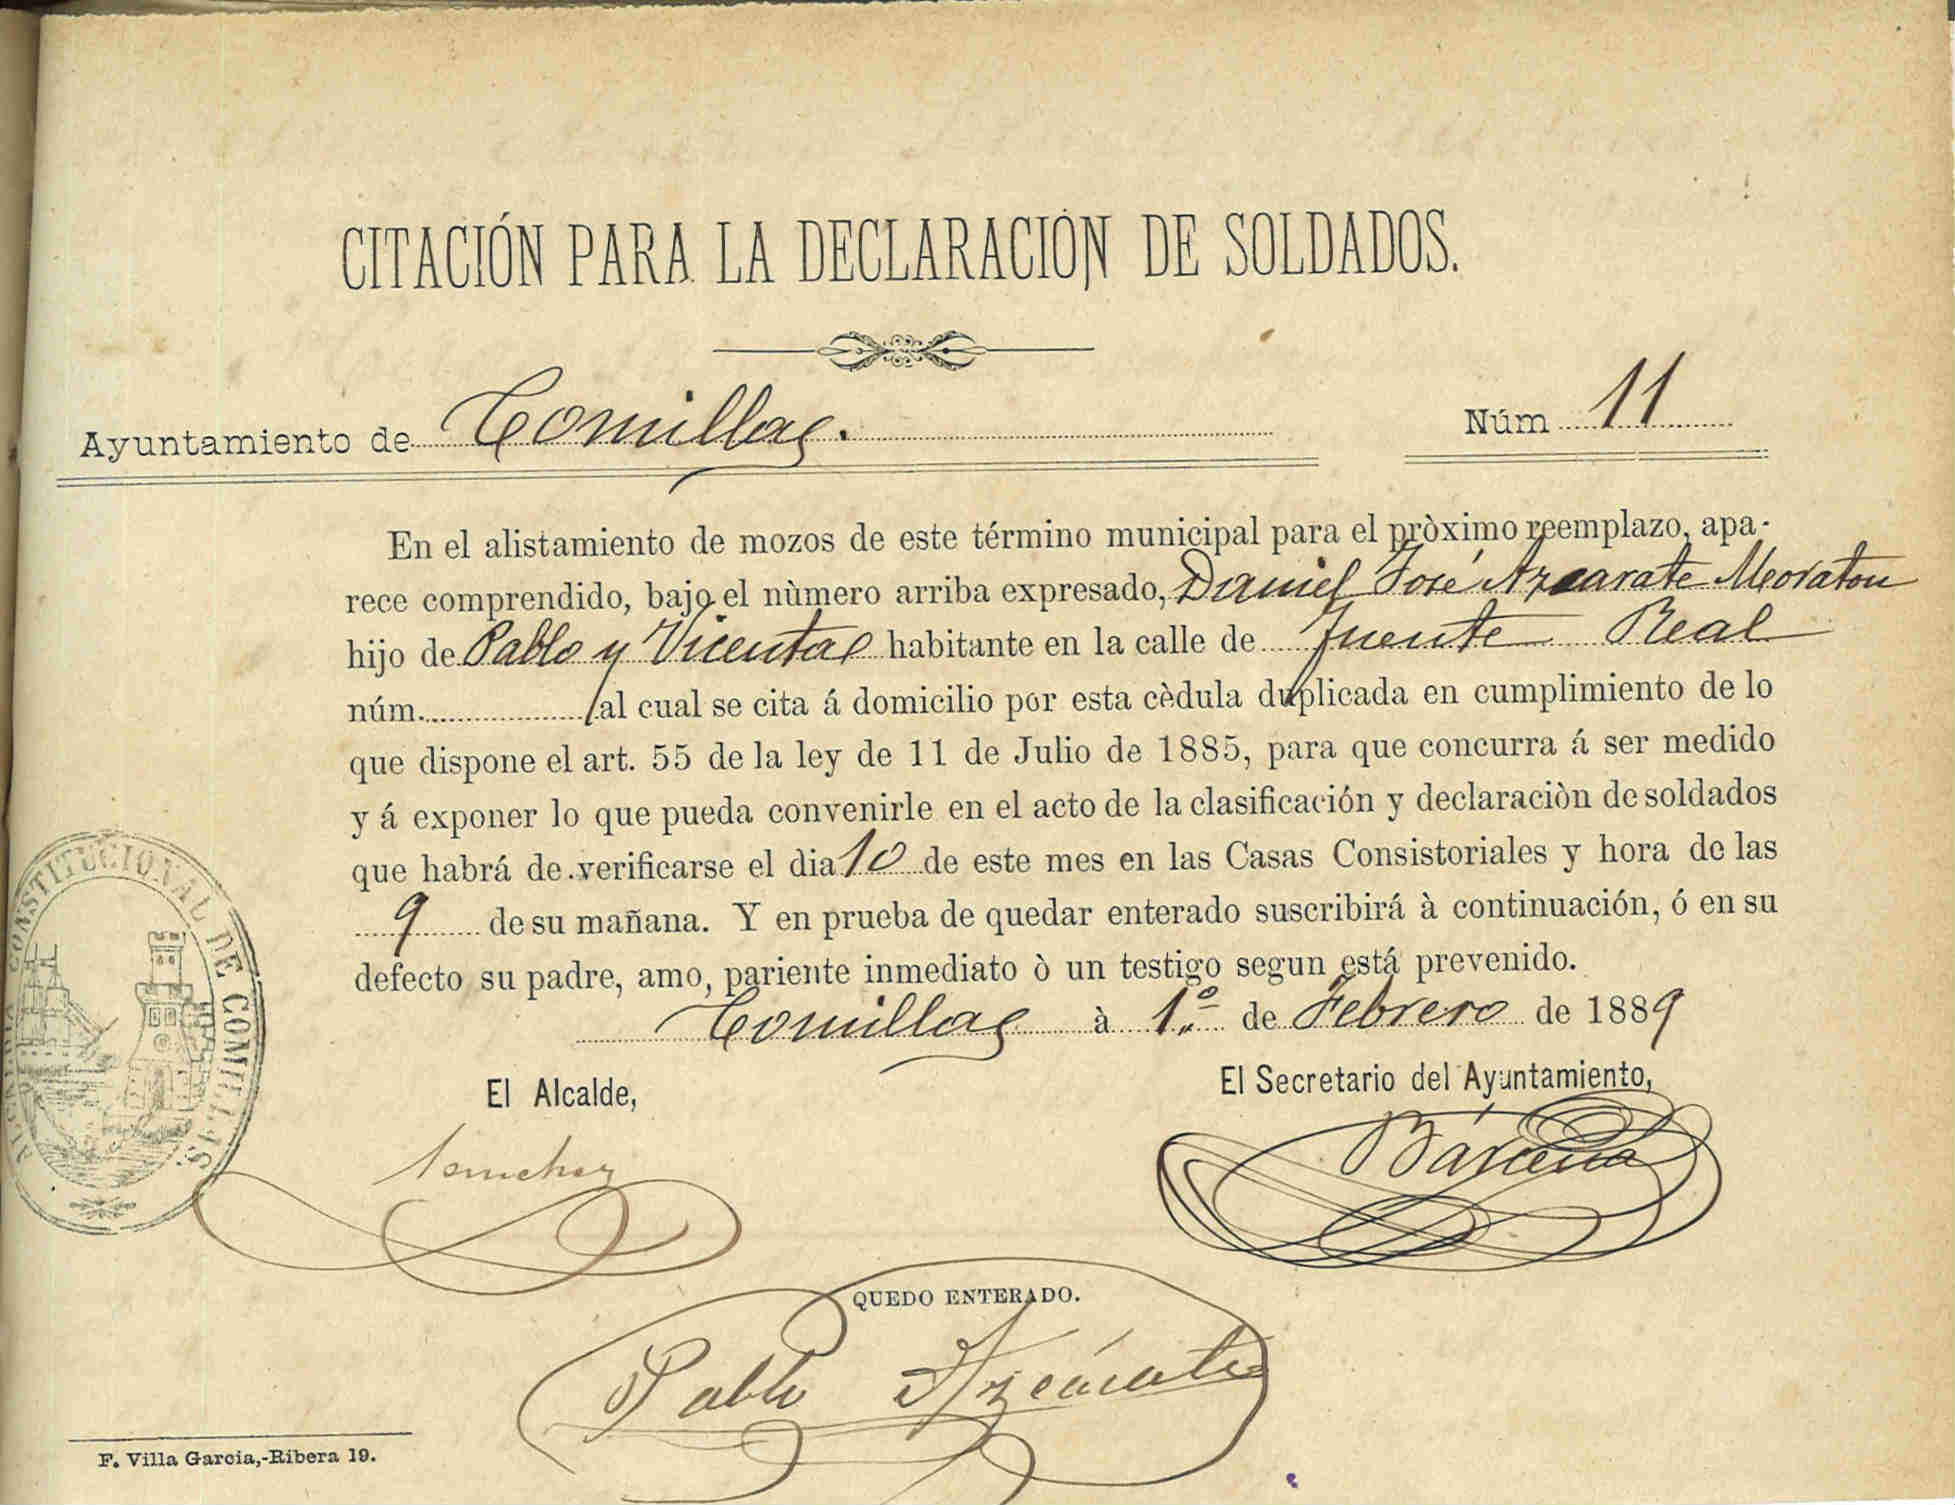 CITACIÓN PARA LA DECLARACIÓN DE SOLDADOS.
Ayuntamiento de Comillas.
Núm 11
En el alistamiento de mozos de este término municipal para el pròximo reemplazo, apa-
rece comprendido, bajo el nùmero arriba expresado, Daniel José Azcarate Moraton
hijo de Pablo y Vicenta habitante en la calle de Fuente Real
núm. al cual se cita á domicilio por esta cèdula duplicada en cumplimiento de lo
que dispone el art. 55 de la ley de 11 de Julio de 1885, para que concurra á ser medido
y á exponer lo que pueda convenirle en el acto de la clasificación y declaraciòn de soldados
que habrá de verificarse el dia 10 de este mes en las Casas Consistoriales y hora de las
9 de su mañana. Y en prueba de quedar enterado suscribirá à continuación, ó en su
defecto su padre, amo, pariente inmediato ò un testigo segun está prevenido.
Comillas à 1.º de Febrero de 1889
El Alcalde,
El Secretario del Ayuntamiento,
Sanchez
Bárcena
CONSTITUCIONAL DE COMILLAS
QUEDO ENTERADO.
Pablo Azcárate
F. Villa Garcia,-Ribera 19.